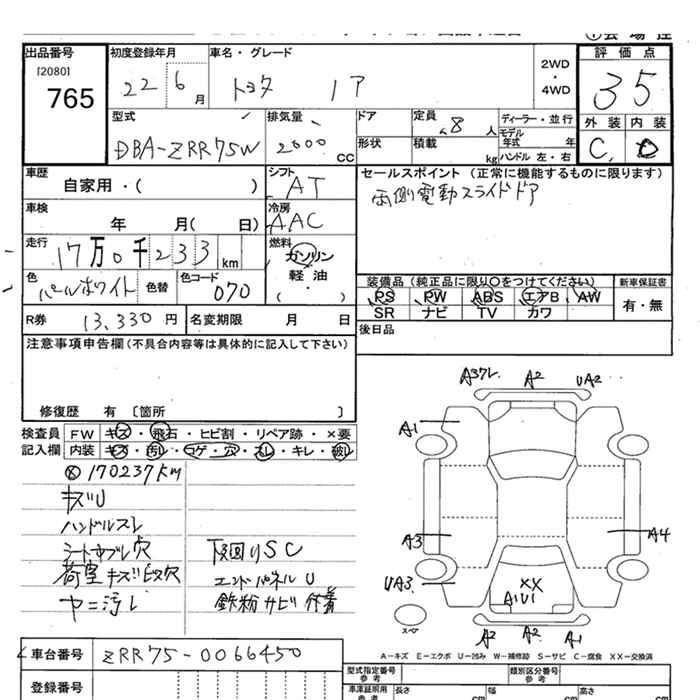 出品番号 初度登録年月 車名・グレード 2WD・4WD 評価点
[2080]
765
22 6月 トヨタ ノア 35
型式 排気量 ドア 定員 8人 ディーラー・並行 外装 内装
DBA-ZRR75W 2000CC 形状 積載 kg モデル年式 年 C, D
ハンドル 左・右
車歴 シフト セールスポイント (正常に機能するものに限ります)
自家用・( ) AT 両側電動スライドドア
車検 冷房
年 月( 日) AAC
走行 燃料
17万0千233km ガソリン
色 色替 色コード 軽油
パールホワイト 070 ( ・ )
装備品 (純正品に限り○をつけてください) 新車保証書
PS PW ABS エアB AW 有・無
SR ナビ TV カワ
R券 13,330円 名変期限 月 日 後日品
注意事項申告欄 (不具合内容等は具体的に記入して下さい)
修復歴 有 〔箇所 〕
検査員 FW キズ・飛石・ヒビ割・リペア跡・×要
記入欄 内装 キズ・汚れ・コゲ・穴・スレ・キレ・破レ
170237km
キズU
ハンドルスレ
シート
下回りSC
荷室キズ
エンドパネルU
ヤニ汚レ
鉄粉サビ付着
A2 UA2
A1
A3 A4
UA3
XX
A1U1
スペア
A2 A2 A1
A-キズ E-エクボ U-凹み W-補修跡 S-サビ C-腐食 XX-交換済
車台番号 ZRR75-0066450
型式指定番号 参考 類別区分番号 参考
登録番号
車庫証明用 参考 長さ cm 幅 cm 高さ cm